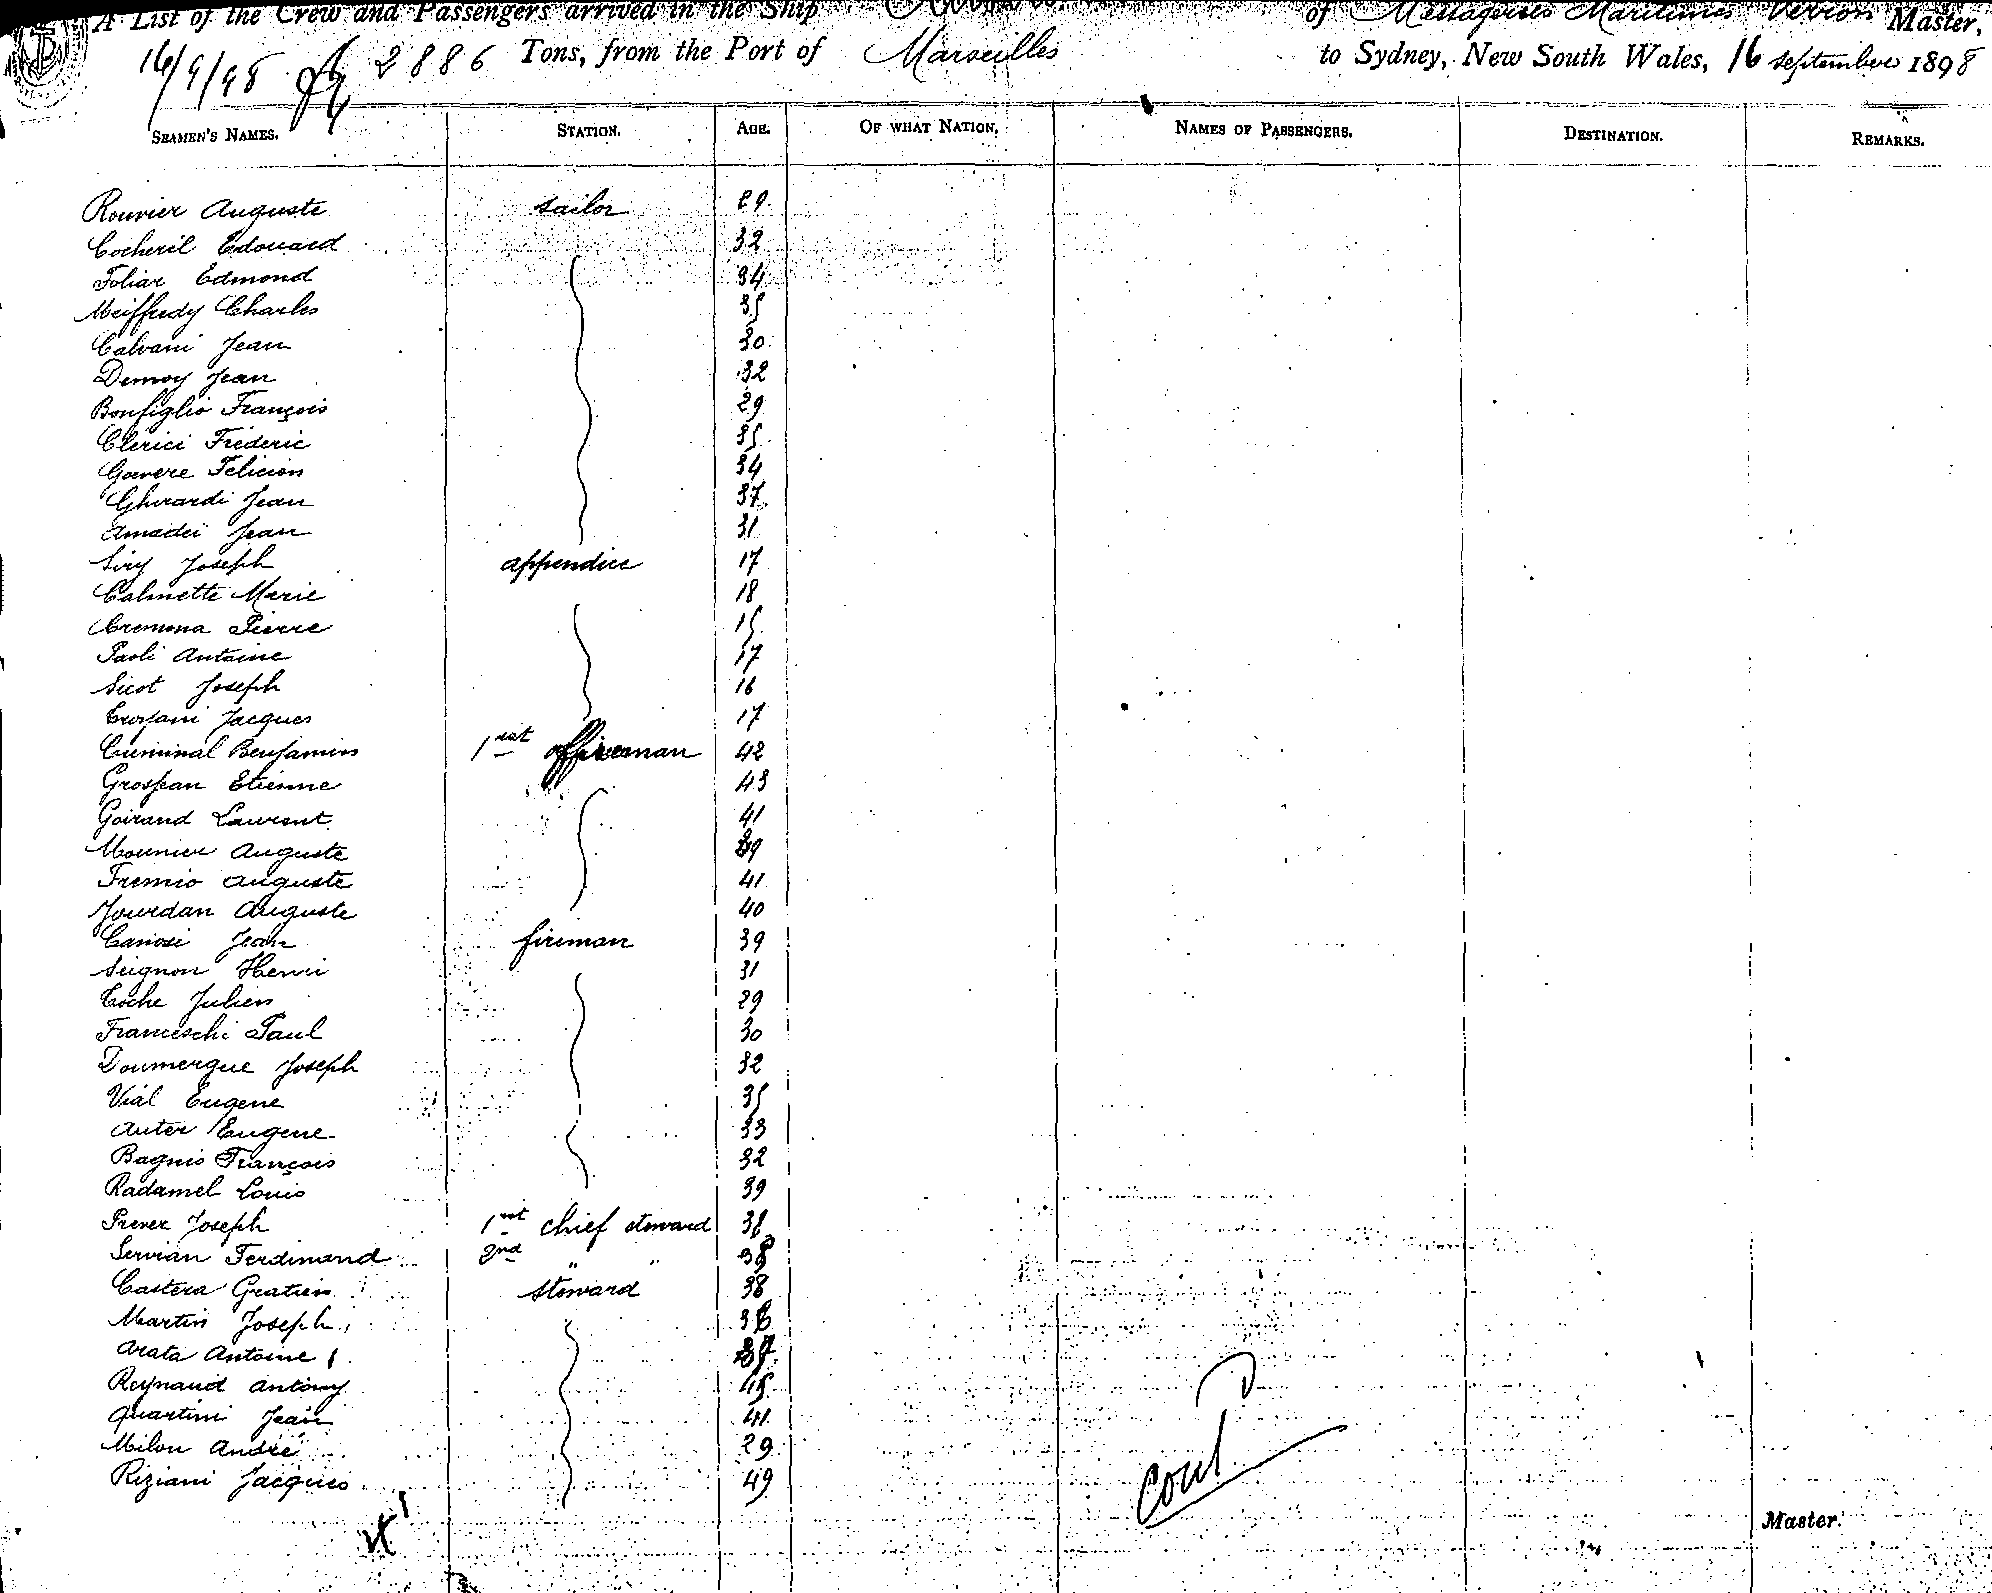 A List of the Crew and Passengers arrived in the Ship of Messageries Maritimes Master,
16/9/98 2886 Tons, from the Port of Marseilles to Sydney, New South Wales, 16 september 1898
SEAMEN'S NAMES. STATION. AGE. OF WHAT NATION. NAMES OF PASSENGERS. DESTINATION. REMARKS.
Rouvier Auguste sailor 29
Cocheril Edouard 32
Foliar Edmond 34
Meiffredy Charles 35
Calvani Jean 30
Demoy Jean 32
Bonfiglio François 29
Clerici Frederic 35
Gavere Felicien 34
Ghirardi Jean 37
Amadei Jean 31
Siry Joseph appendice 17
Calmette Marie 18
Cremona Pierre 15
Paoli Antoine 17
Sicot Joseph 16
Jacques 17
Criminal Benjamin 1rst fireman 42
Grosjean Etienne 43
Goirand Laurent 41
Mounier Auguste 39
Fremio Auguste 41
Jourdan Auguste 40
Canosi Jean fireman 39
Seignon Henri 31
Coche Julien 29
Franceschi Paul 30
Doumergue Joseph 32
Vial Eugene 35
Auter Eugene 33
Bagnis François 32
Radamel Louis 39
Prever Joseph 1rst chief steward 36
Servian Ferdinand 2nd " " 38
Castera Gratien steward 38
Martin Joseph 38
Arata Antoine 37
Reynaud Antony 45
Quartini Jean 41
Milou André 29
Riziani Jacques 49
cont
Master.